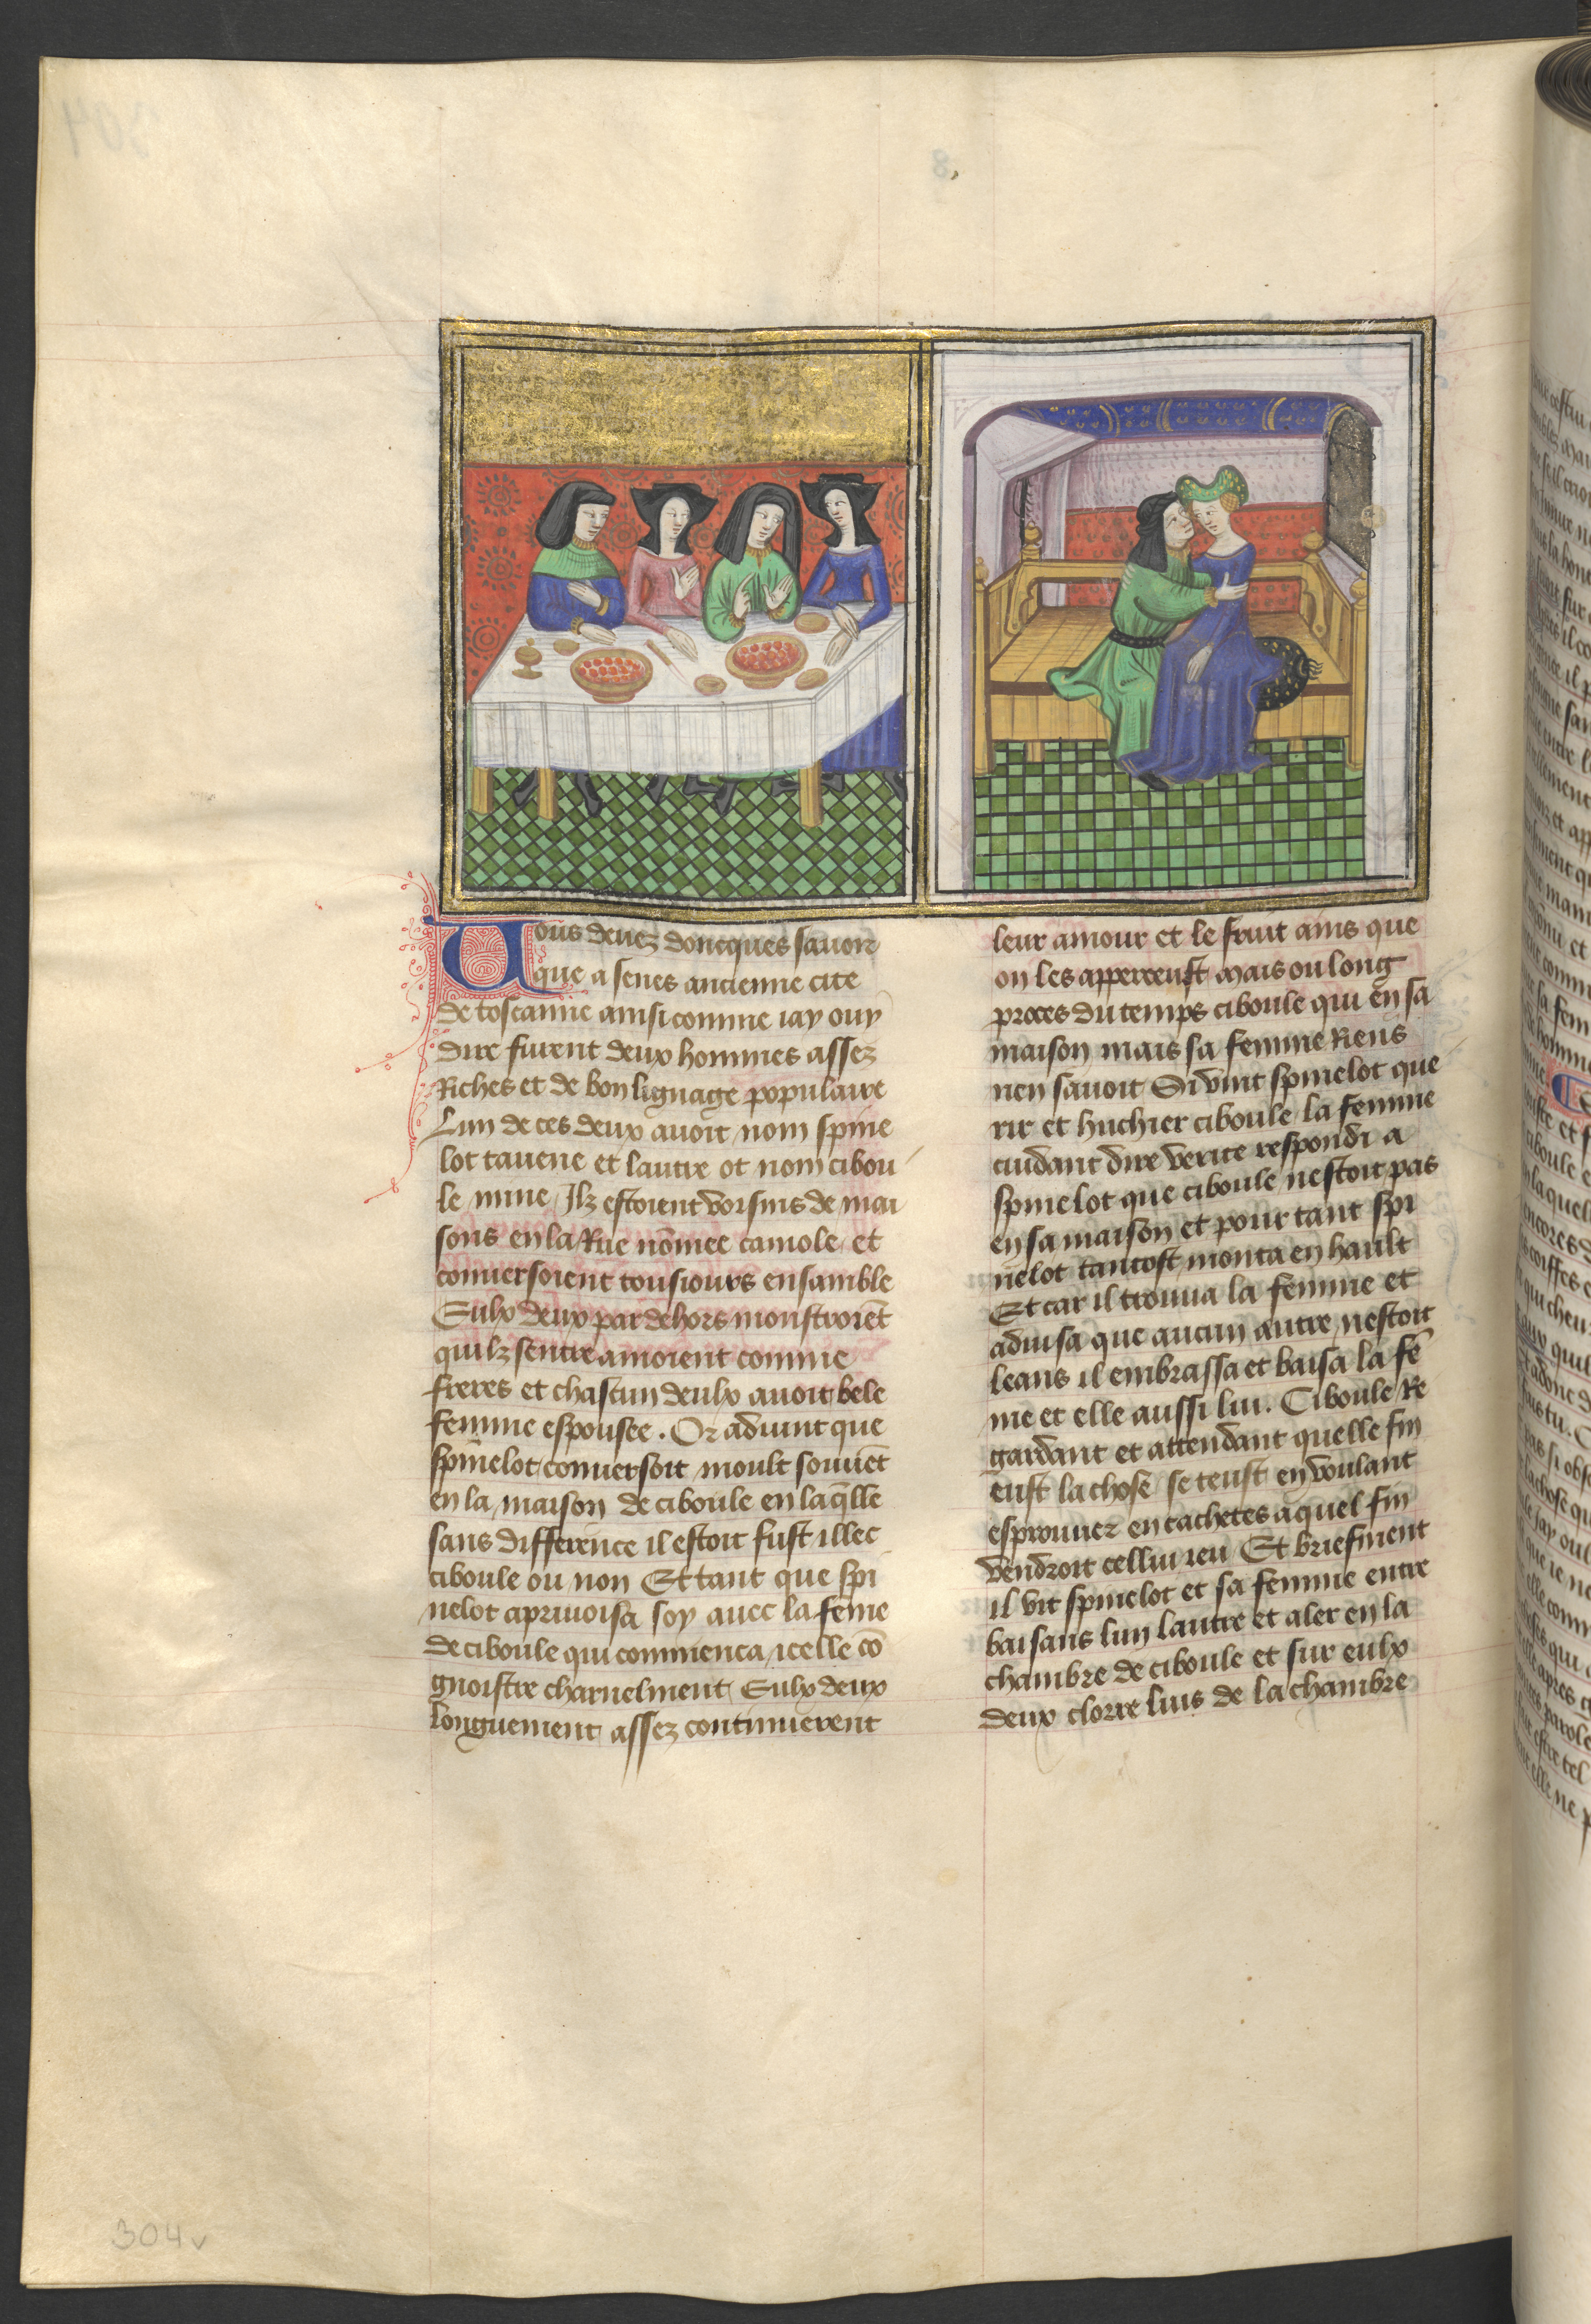 304
8
Uous deuez doncques sauoir
que a senes ancienne cite
de toscanne ainsi comme iay ouy
dire furent deux hommes assez
Riches et de bon lignage populaire
Lun de ces deux auoit nom spine
lot tauene et lautre ot nom cibou
le mine Ilz estoient voisins de mai
sons en la Rue nõmee camole et
conuersoient tousiours ensamble
Eulx deux par dehors monstroiẽt
quilz sentre amoient comme
freres et chascun deulx auoit bele
femme espousee . Or aduint que
spinelot conuersoit moult souuẽt
en la maison de ciboule en laq̃lle
sans difference il estoit fust illec
ciboule ou non Et tant que spi
nelot apriuoisa soy auec la feme
de ciboule qui commenca icelle cõ
gnoistre charnelment Eulx deux
longuement assez continuerent
leur amour et le fruit ains que
on les apperceust Mais ou long
proces du temps ciboule qui en sa
maison mais sa femme Riens
nen sauoit Si vint spinelot que
rir et huchier ciboule la femme
cuidant dire verite respondi a
spinelot que ciboule nestoit pas
en sa maison et pour tant spi
nelot tantost monta en hault
Et car il trouua la femme et
aduisa que aucun autre nestoit
leans il embrassa et baisa la fẽ
me et elle aussi lui . Ciboule Re
gardant et attendant quelle fin
eust la chose se teust en voulant
esprouuer en cachetes a quel fin
vendroit cellui ieu Et briefment
il vit spinelot et sa femme entre
baisans lun lautre et aler en la
chambre de ciboule et sur eulx
deux clorre luis de la chambre
304v